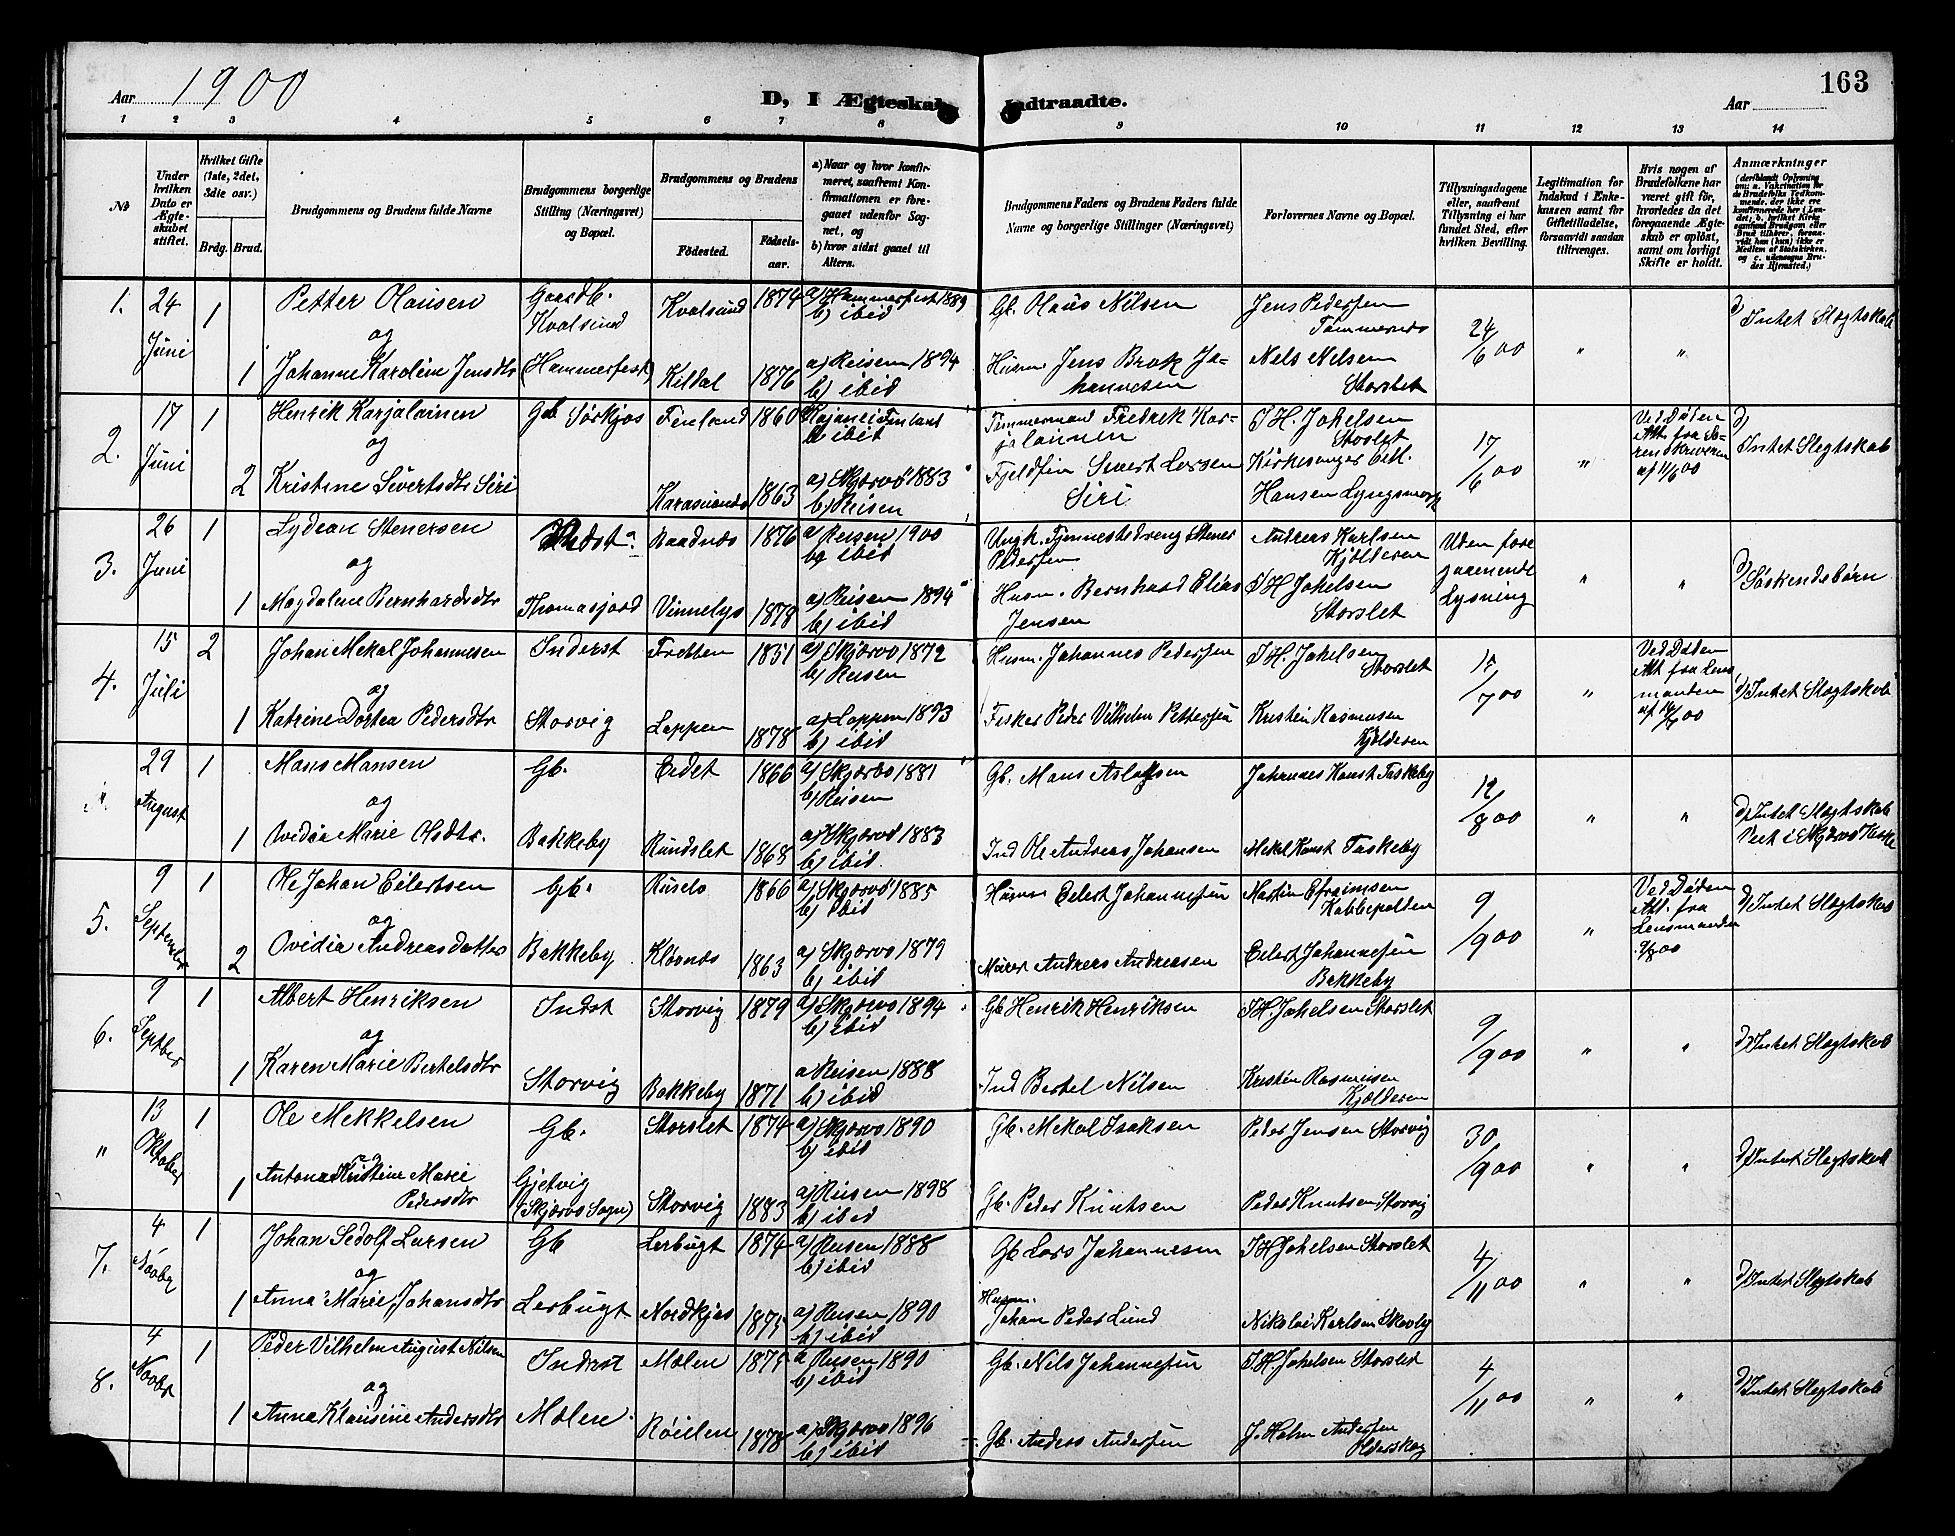 Aar 1900
D, I Ægteskab Indtraadte.
Aar
163
1 2 3 4 5 6 7 8 9 10 11 12 13 14
№
Under hvilken Dato er Ægteskabet stiftet.
Hvilket Gifte (1ste, 2det, 3die osv.)
Brdg. Brud.
Brudgommens og Brudens fulde Navne
Brudgommens borgerlige Stilling (Næringsvei) og Bopæl.
Brudgommens og Brudens
Fødested. Fødselsaar.
a) Naar og hvor konfirmeret, saafremt Konfirmationen er foregaaet udenfor Sognet, og
b) hvor sidst gaaet til Alters.
Brudgommens Faders og Brudens Faders fulde Navne og borgerlige Stillinger (Næringsvei)
Forlovernes Navne og Bopæl.
Tillysningsdagene eller, saafremt Tillysning ei har fundet Sted, efter hvilken Bevilling.
Legitimation for Indskud i Enkekassen samt for Giftetilladelse, forsaavidt saadan tiltrænges.
Hvis nogen af Brudefolkene har været gift før, hvorledes da det foregaaende Ægteskab er opløst, samt om lovligt Skifte er holdt.
Anmærkninger
1. 24 Juni 1 Petter Olausen Gaardb. Kvalsund Kvalsund 1874 a) Hammerfest 1889 b) ibid Gb. Olaus Nilsen Jens Pedersen 24/6 00 " " Intet Slegtskab
og
1 Johanne Karoline Jensdtr (Hammerfest) Kildal 1876 a) Reisen 1894 b) ibid Husm Jens Brok Johannesen Nels Nelsen Storslet
2. 17 Juni 1 Henrik Karjalainen Gb Sørkjos Finland 1860 Kajana i Finland b) ibid Tømmermand Fredrik Karjalainen I H. Jakelsen Storslet 17/6 00 " Ved Døden Att. fra Sorenskriveren af 11/6 00 Intet Slegtskab
og
2 Kristine Sivertsdtr Siri Karasuando 1863 a) Skjærvø 1883 b) Reisen Fjeldfin Sivert Larsen Siri Kirkesanger Hansen
3. 26 Juni 1 Lydean Stenersen Indst. Baadnæs 1876 a) Reisen 1900 b) ibid Ungk. Tjenestedreng Stener Pedersen Andreas Karlsen Kjölderen Uden foregaaende Lysning " " Søskendebørn
og
1 Magdalene Bernhardsdtr Thomasjord Vinnelys 1878 a) Reisen 1894 b) ibid Husm. Bernhard Elias Jensen I H. Jakelsen Storslet
4. 15 Juli 2 Johan Mekal Johannesen Inderst 1851 a) Skjærvø 1872 b) Reisen Husm. Johannes Pedersen I H. Jakelsen Storslet 15/7 00 " Ved Døden Att fra Lensmanden Intet Slegtskab
og
1 Katrine Dortea Pedersdtr Storvig Loppen 1878 a) Loppen 1893 b) ibid Fisker Peder Vilhelm Pettersen Kristin Rasmusen Kjölderen
" 29 August 1 Mans Mansen Gb. Eidet 1866 a) Skjærvø 1881 b) Reisen Gb. Mans Aslaksen Johannes Hansen Taskeby 12/8 00 " " Intet Slegtskab Viet i Skjærvø Kirke
og
1 Ovedia Marie Olsdtr. Bakkeby Rundslet 1868 a) Skjærvø 1883 b) ibid. Ind Ole Andreas Johansen Mekel Hansen Taskeby
5. 9 September 1 Ole Johan Eilertsen Gb. 1866 a) Skjærvø 1885 b) ibid Husm Eilert Johannesen Martin Efraimsen Kobbepolden 9/9 00 " Ved Døden Att. fra Lensmanden Intet Slegtskab
og
2 Ovidia Andreasdatter Bakkeby Klovnæs 1863 a) Skjærvø 1879 b) ibid Murer Andreas Andreasen Eilert Johannesen Bakkeby
6. 9 Septber 1 Albert Henriksen Indst Storvig 1879 a) Skjærvø 1894 b) ibid Gb Henrik Henriksen I H. Jakelsen Storslet 9/9 00 " " Intet Slegtskab
og
1 Karen Marie Bertelsdtr Storvig Bakkeby 1871 a) Reisen 1888 b) ibid Ind Bertel Nilsen Kristin Rasmusen Kjölderen
" 13 Oktober 1 Ole Mekkelsen Gb. Storslet 1874 a) Skjærvø 1890 b) ibid Gb. Mekal Isaksen Peder Jensen Storvig 30/9 00 " " Intet Slegtskab
og
1 Antona Kristine Marie Pedersdtr Gjetvig (Skjærvø Sogn) Storvig 1883 a) Reisen 1898 b) ibid Gb. Peder Knutsen Peder Knutsen Storvig
7. 4 Novbr 1 Johan Sedolf Larsen Gb Lerbugt 1874 a) Reisen 1888 b) ibid Gb Lars Johannesen I H Jakelsen Storslet 4/11 00 " " Intet Slegtskab
og
1 Anna Marie Johansdtr Lerbugt Nordkjos 1875 a) Reisen 1890 b) ibid Husm. Johan Peder Lund Nikolai Karlsen Skovly
8. 4 Novbr 1 Peder Vilhelm August Nilsen Inderst Molen 1875 a Reisen 1890 b) ibid Gb. Nils Johannesen I H. Jakelsen Storslet 4/11 00 " " Intet Slegtskab
og
1 Anna Klausine Andersdtr Molen Röielen 1878 a) Skjærvø 1896 b) ibid Gb. Anders Andersen J. Holm Andersen Olderskog